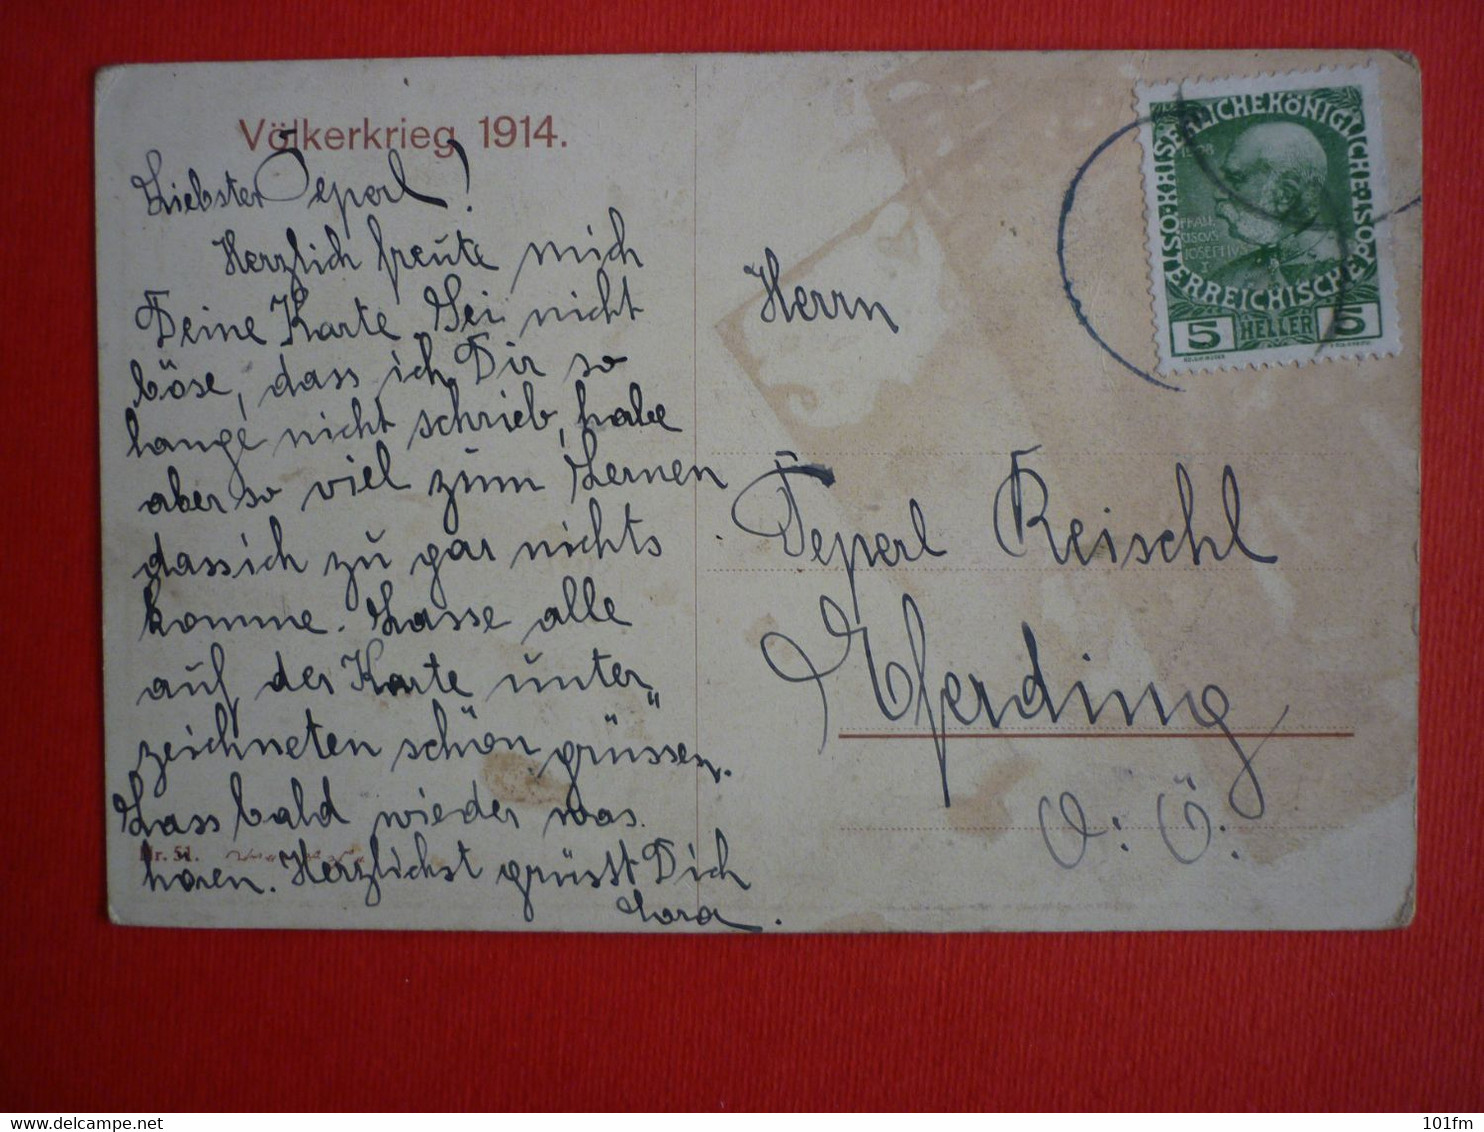 Völkerkrieg 1914.
Liebster Peperl!
Herzlich freute mich
Deine Karte. Sei nicht
böse, dass ich Dir so
lange nicht schrieb, habe
aber so viel zum Lernen
dass ich zu gar nichts
komme. Lasse alle
auf der Karte unter„
zeichneten schön grüssen.
Lass bald wieder was
hören. Herzlichst grüsst Dich
Lora.
Nr. 51.
KAISERLICHEKÖNIGLICHE
ÖSTERREICHISCHE POST
1908
5 HELLER 5
Herrn
Peperl Reischl
Eferding
O. Ö.
delcampe.net
101fm